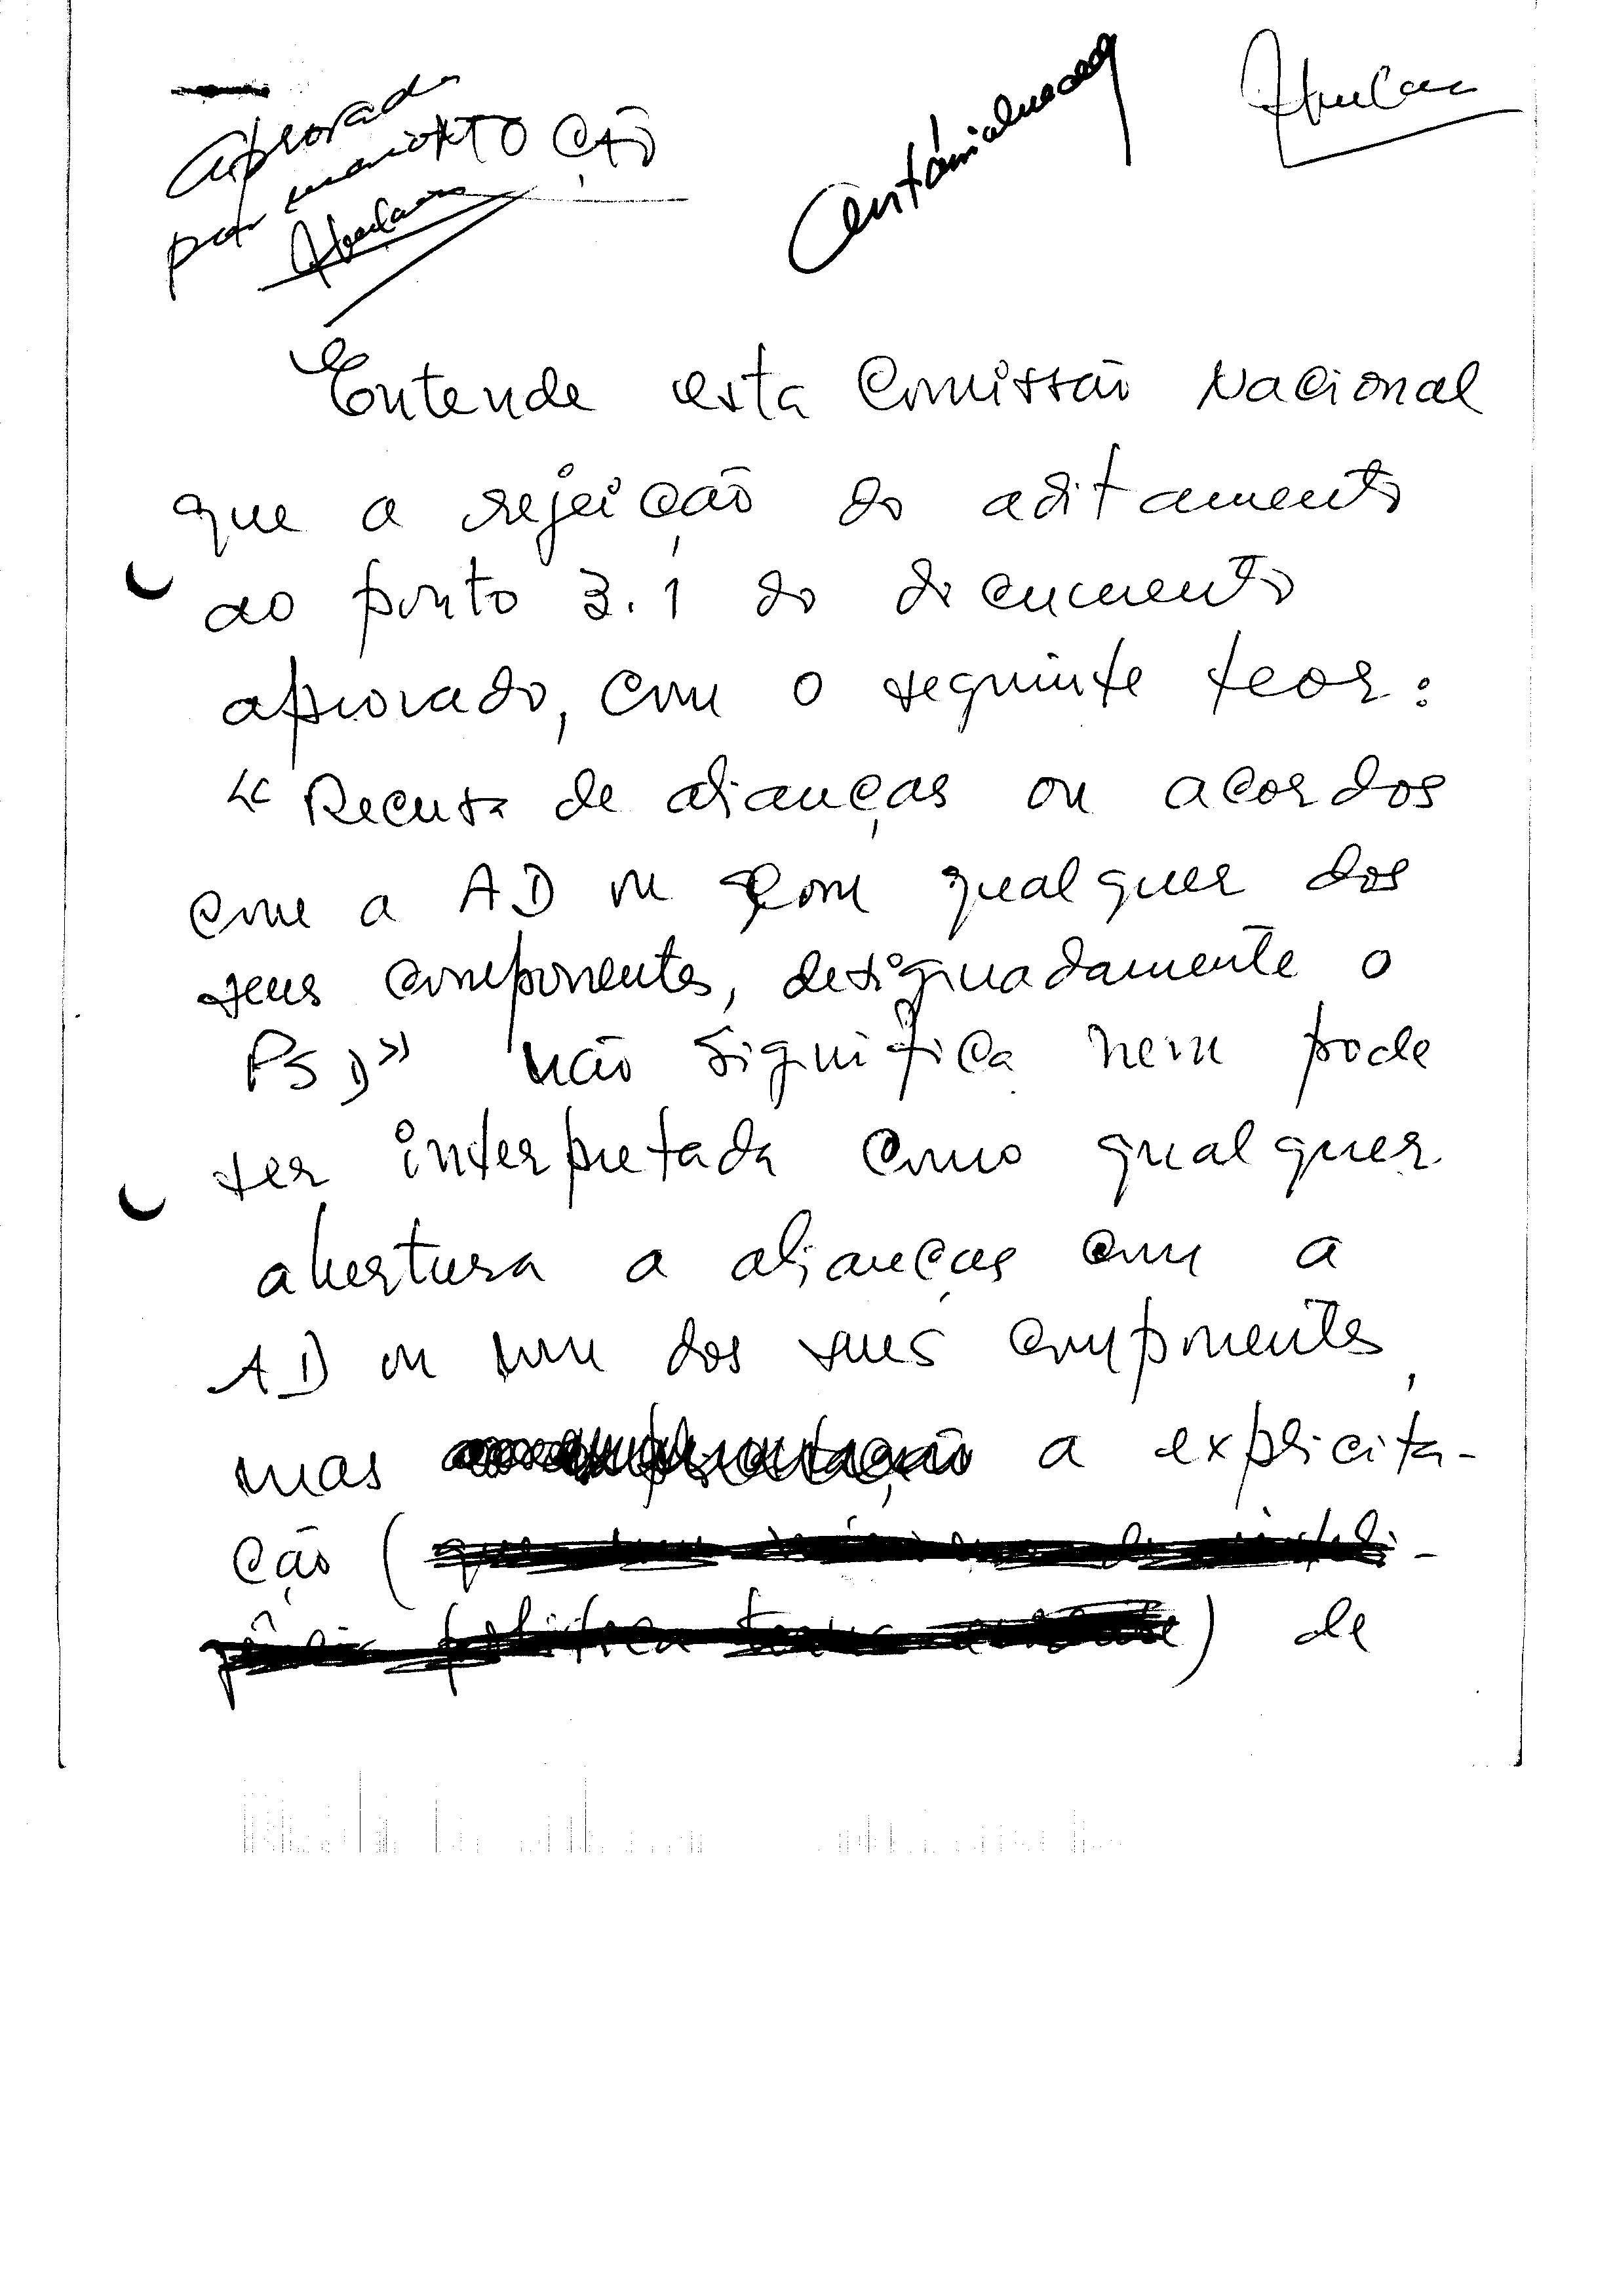 Aprovada
por maioria
MOÇÃO
Entende esta Comissão Nacional
que a rejeição do aditamento
ao ponto 3.1 do documento
aprovado, com o seguinte teor:
"Recusa de alianças ou acordos
com a AD ou com qualquer dos
seus componentes, designadamente o
PSD» não significa nem pode
ser interpretada como qualquer
abertura a alianças com a
AD ou um dos seus componentes,
mas a explicita-
ção (
) de